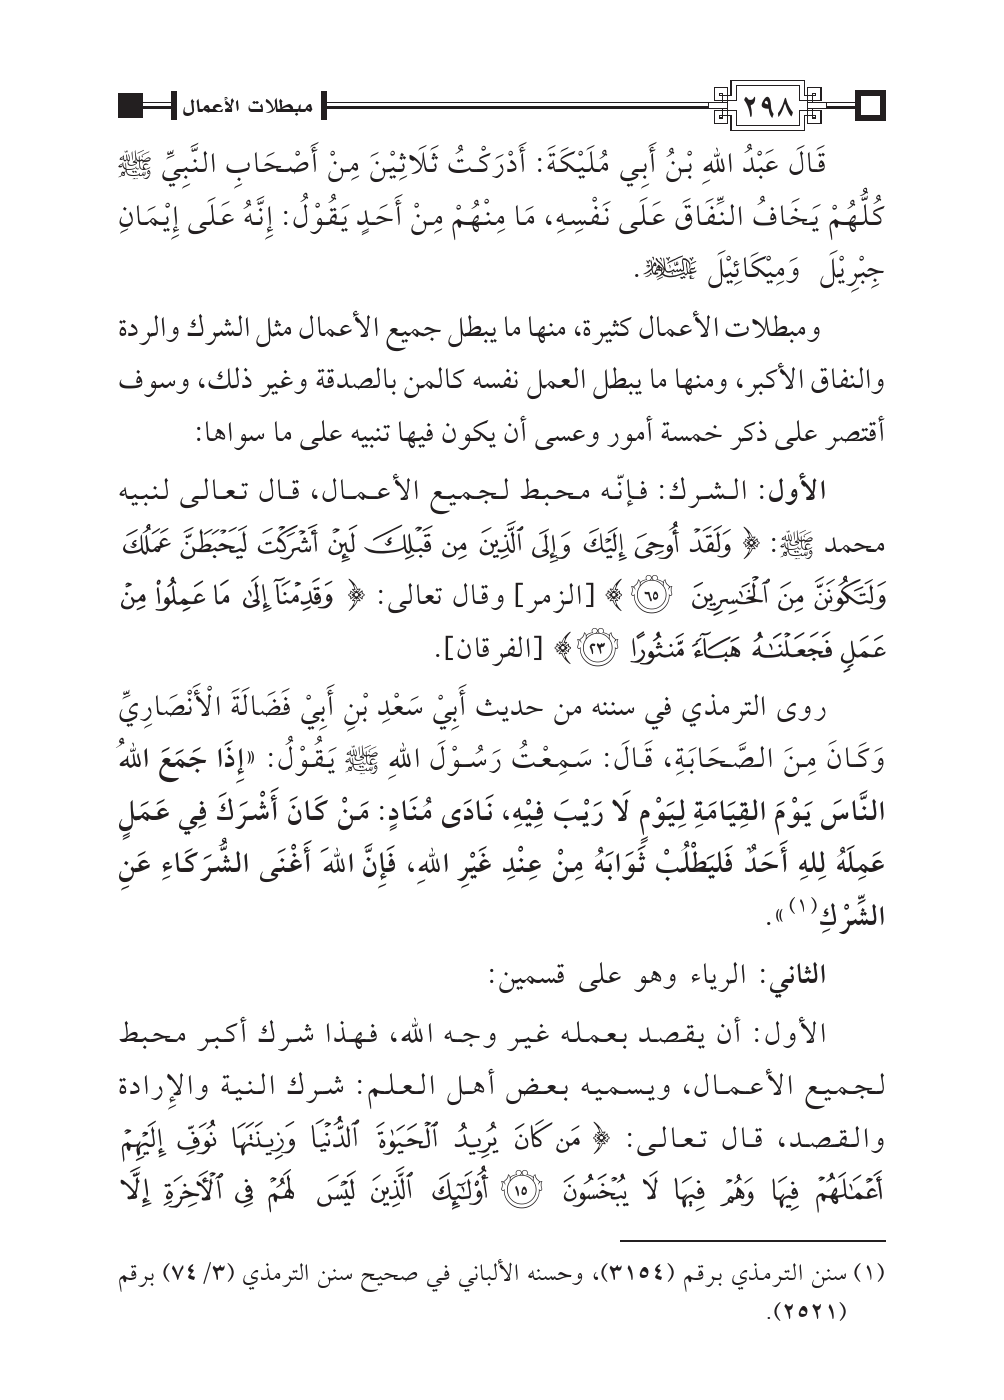 ٢٩٨
مبطلات الأعمال
قَالَ عَبْدُ اللهِ بْنُ أَبِي مُلَيْكَةَ: أَدْرَكْتُ ثَلَاثِيْنَ مِنْ أَصْحَابِ النَّبِيِّ ﷺ
كُلُّهُمْ يَخَافُ النِّفَاقَ عَلَى نَفْسِهِ، مَا مِنْهُمْ مِنْ أَحَدٍ يَقُوْلُ: إِنَّهُ عَلَى إِيْمَانِ
جِبْرِيْلَ وَمِيْكَائِيْلَ عليهما السلام.
ومبطلات الأعمال كثيرة، منها ما يبطل جميع الأعمال مثل الشرك والردة
والنفاق الأكبر، ومنها ما يبطل العمل نفسه كالمن بالصدقة وغير ذلك، وسوف
أقتصر على ذكر خمسة أمور وعسى أن يكون فيها تنبيه على ما سواها:
الأول: الشرك: فإنّه محبط لجميع الأعمال، قال تعالى لنبيه
محمد ﷺ: ﴿ وَلَقَدْ أُوحِيَ إِلَيْكَ وَإِلَى ٱلَّذِينَ مِن قَبْلِكَ لَئِنْ أَشْرَكْتَ لَيَحْبَطَنَّ عَمَلُكَ
وَلَتَكُونَنَّ مِنَ ٱلْخَٰسِرِينَ ٦٥ ﴾ [الزمر] وقال تعالى: ﴿ وَقَدِمْنَآ إِلَىٰ مَا عَمِلُوا۟ مِنْ
عَمَلٍ فَجَعَلْنَٰهُ هَبَآءً مَّنثُورًا ٢٣ ﴾ [الفرقان].
روى الترمذي في سننه من حديث أَبِيْ سَعْدِ بْنِ أَبِيْ فَضَالَةَ الْأَنْصَارِيِّ
وَكَانَ مِنَ الصَّحَابَةِ، قَالَ: سَمِعْتُ رَسُوْلَ اللهِ ﷺ يَقُوْلُ: «إِذَا جَمَعَ اللهُ
النَّاسَ يَوْمَ القِيَامَةِ لِيَوْمٍ لَا رَيْبَ فِيْهِ، نَادَى مُنَادٍ: مَنْ كَانَ أَشْرَكَ فِي عَمَلٍ
عَمِلَهُ لِلهِ أَحَدٌ فَليَطْلُبْ ثَوَابَهُ مِنْ عِنْدِ غَيْرِ اللهِ، فَإِنَّ اللهَ أَغْنَى الشُّرَكَاءِ عَنِ
الشِّرْكِ(١)».
الثاني: الرياء وهو على قسمين:
الأول: أن يقصد بعمله غير وجه الله، فهذا شرك أكبر محبط
لجميع الأعمال، ويسميه بعض أهل العلم: شرك النية والإرادة
والقصد، قال تعالى: ﴿ مَن كَانَ يُرِيدُ ٱلْحَيَوٰةَ ٱلدُّنْيَا وَزِينَتَهَا نُوَفِّ إِلَيْهِمْ
أَعْمَٰلَهُمْ فِيهَا وَهُمْ فِيهَا لَا يُبْخَسُونَ ١٥ أُو۟لَٰٓئِكَ ٱلَّذِينَ لَيْسَ لَهُمْ فِى ٱلْآخِرَةِ إِلَّا
(١) سنن الترمذي برقم (٣١٥٤)، وحسنه الألباني في صحيح سنن الترمذي (٣/ ٧٤) برقم
(٢٥٢١).